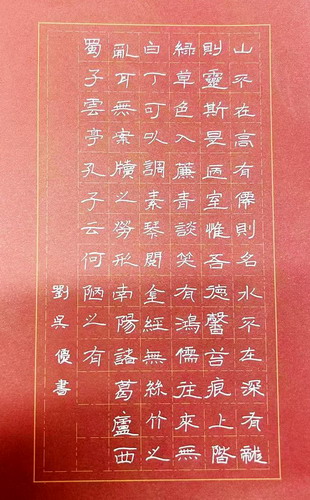 山不在高有僊則名水不在深有龍
則靈斯是陋室惟吾德馨苔痕上階
綠草色入簾青談笑有鴻儒往來無
白丁可以調素琴閱金經無絲竹之
亂耳無案牘之勞形南陽諸葛廬西
蜀子雲亭孔子云何陋之有
劉吳優書